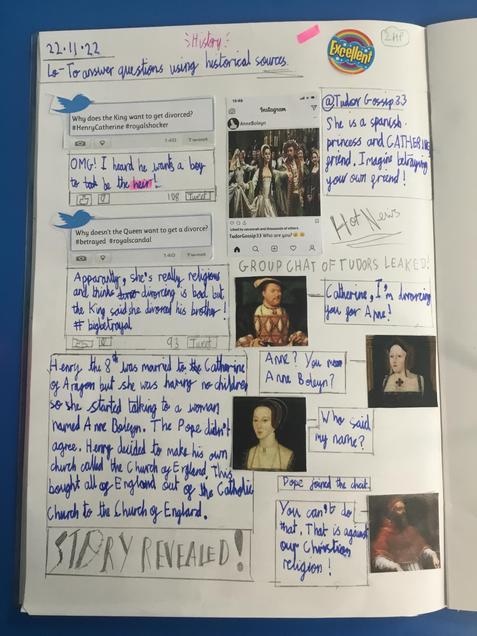 22.11.22
History
Excellent
Lo - To answer questions using historical sources.
Why does the King want to get divorced?
#HenryCatherine #royalshocker
140
Tweet
OMG! I heard he wants a boy
to be the heir!
108 Tweet
Why doesn't the Queen want to get a divorce?
#betrayed #royalscandal
140
Tweet
Apparantly, she's really religious
and thinks divorcing is bad but
the King said she divorced his brother!
# bigbetrayal
93 Tweet
Instagram
AnneBoleyn
Liked by savannah and thousands of others
TudorGossip33 Who are you?
@Tudor Gossip33
She is a spanish
princess and CATHERINE
friend. Imagine betraying
your own friend!
Hot News
GROUP CHAT OF TUDORS LEAKED!
Catherine, I'm divorcing
you for Anne!
Anne? You mean
Anne Boleyn?
Who said
my name?
Pope joined the chat.
You can't do
that. That is against
our Christian
religion!
Henry the 8th was married to the Catherine
of Aragon but she was having no children
so she started talking to a woman
named Anne Boleyn. The Pope didn't
agree. Henry decided to make his own
church called the Church of England. This
bought all of England out of the Catholic
Church to the Church of England.
STORY REVEALED!